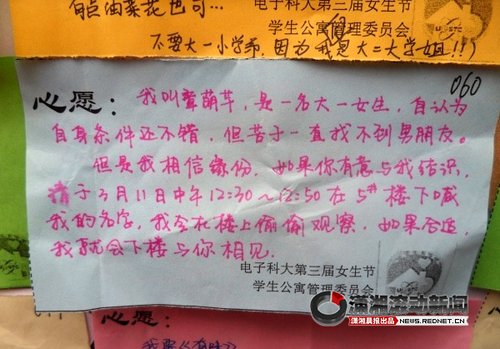 电子科大第三届女生节
学生公寓管理委员会
不要大一小学弟,因为我是大二大学姐!!)
060
心愿:我叫覃萌芊,是一名大一女生,自认为
自身条件还不错,但苦于一直找不到男朋友。
但是我相信缘份,如果你有意与我结识,
请于3月11日中午12:30~12:50在5#楼下喊
我的名字,我会在楼上偷偷观察,如果合适,
我就会下楼与你相见。
电子科大第三届女生节
学生公寓管理委员会
潇湘滚动新闻
潇湘晨报出品 NEWS.REDNET.CN
心愿:
电子科大第三届女生节